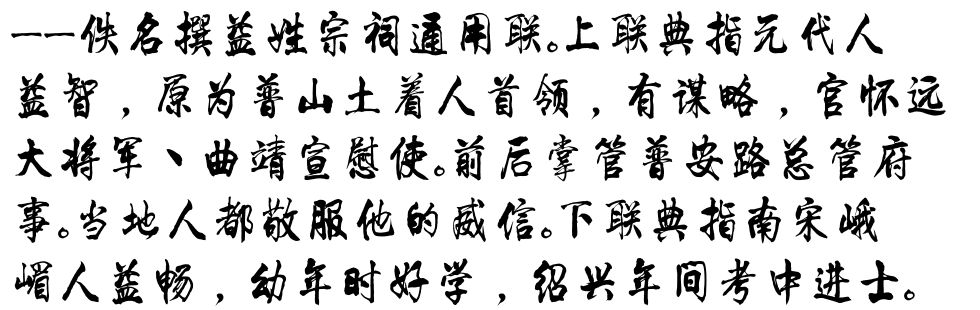 ——佚名撰益姓宗祠通用联。上联典指元代人
益智，原为普山土着人首领，有谋略，官怀远
大将军、曲靖宣慰使。前后掌管普安路总管府
事。当地人都敬服他的威信。下联典指南宋峨
嵋人益畅，幼年时好学，绍兴年间考中进士。